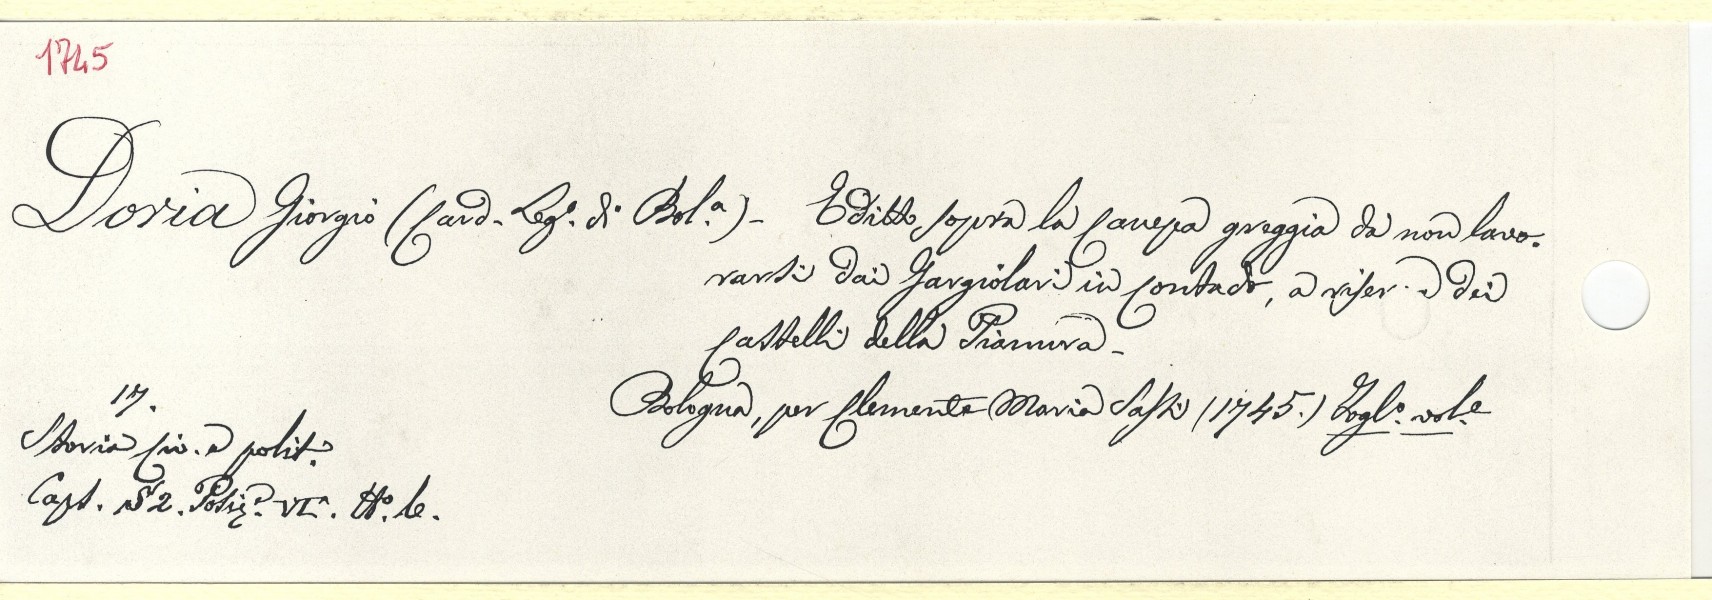 1745
Doria Giorgio (Card. Leg.º di Bol.ª) - Editto sopra la canepa greggia da non lavo-
rarsi dai Gargiolari in contado, a riser.ª dei
castelli della Pianura -
Bologna, per Clemente Maria Sassi (1745.) Fogl.º vol.e
17.
Storia civ. e polit.ª
Cart. S2. Posiz.e VI.ª